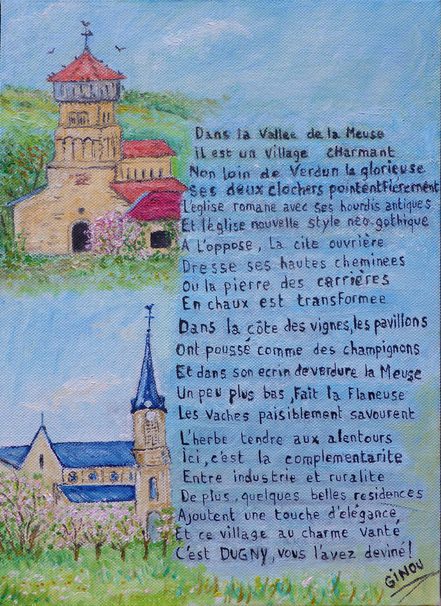 Dans la Vallee de la Meuse
il est un Village CHarmant
Non loin de Verdun la glorieuse
Ses deux clochers pointent Fierement
L'eglise romane avec ses hourdis antiques
Et l'église nouvelle style neo-gothique
A L'oppose, La cite ouvrière
Dresse ses hautes cheminees
Ou la pierre des carrières
En chaux est transformee
Dans la côte des vignes, les pavillons
Ont poussé comme des champignons
Et dans son ecrin de verdure la Meuse
Un peu plus bas, Fait la Flaneuse
Les vaches paisiblement savourent
L'herbe tendre aux alentours
Ici, c'est la complementarite
Entre industrie et ruralite
De plus, quelques belles residences
Ajoutent une touche d'elégance
Et ce village au charme vanté
C'est DUGNY, vous l'avez deviné!
GINOU